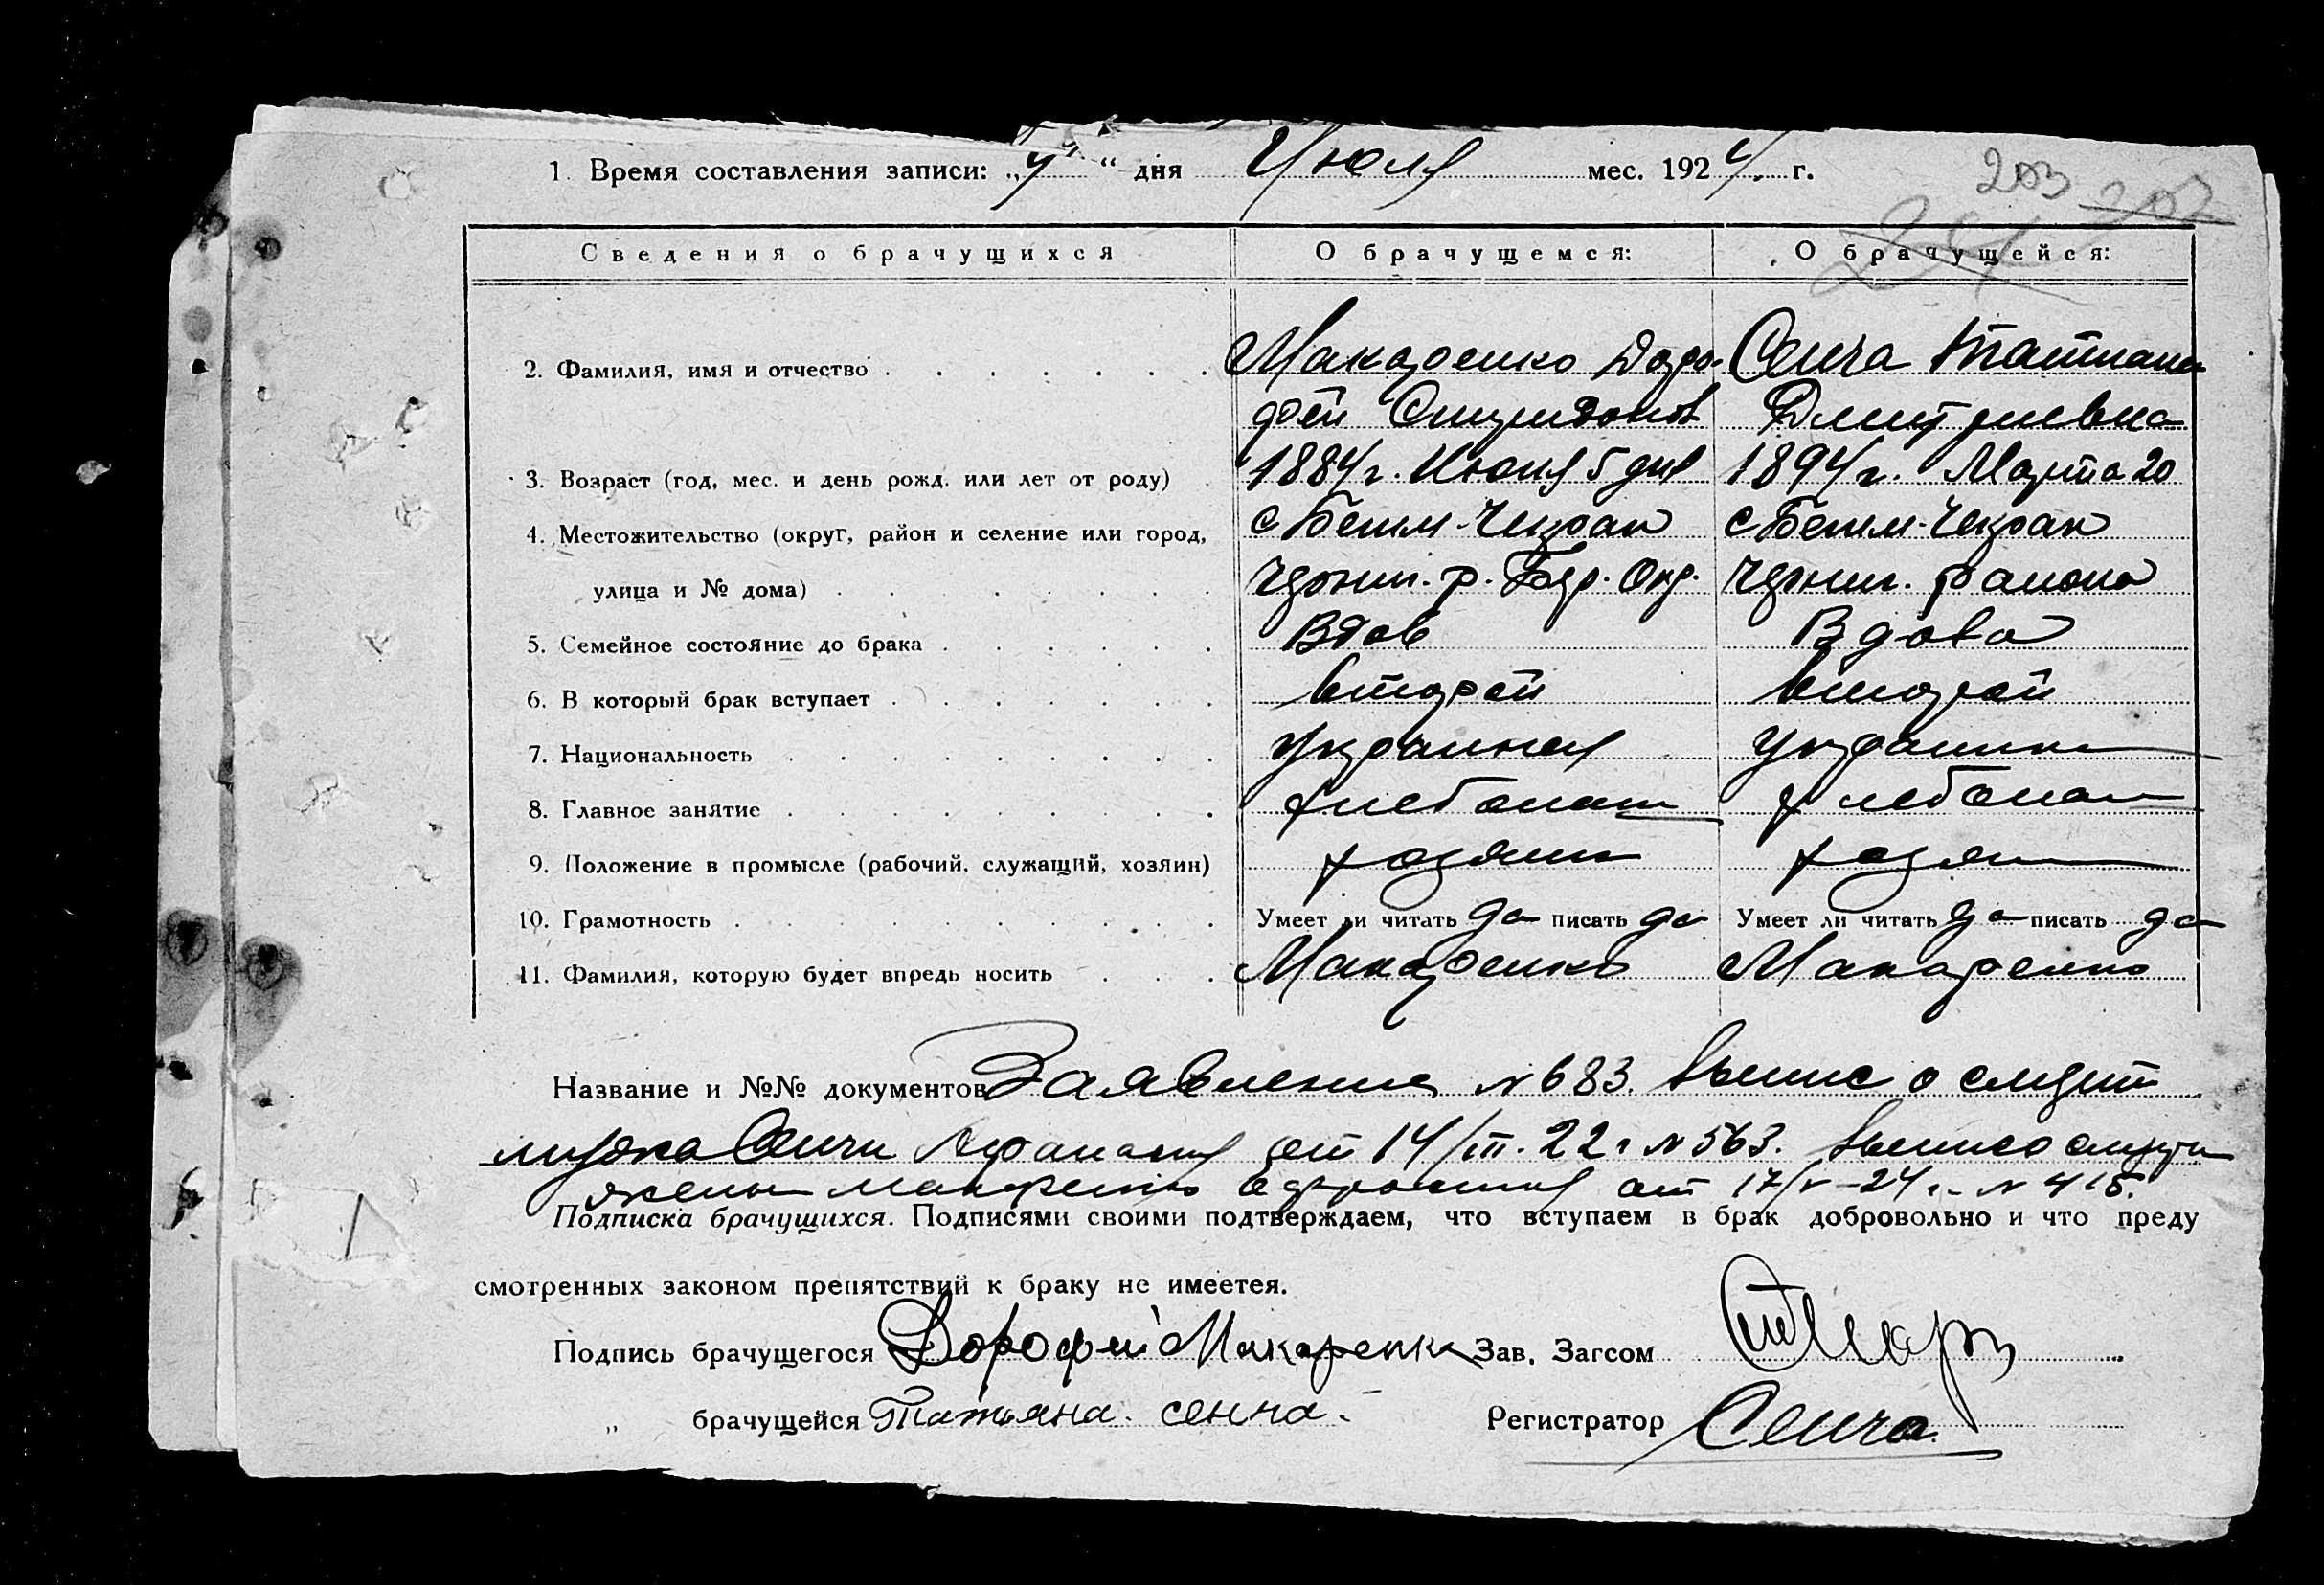 1. Время составления записи: „4“ дня Июля мес. 1924. г.
203 202
Сведения о брачущихся О брачущемся: О брачущейся:
2. Фамилия, имя и отчество Макаренко Доро- Сенча Татиана
фей Спиридонов Дмитриевна
3. Возраст (год, мес. и день рожд. или лет от роду) 1884 г. Июня 5 дня 1894 г. Марта 20
4. Местожительство (округ, район и селение или город, с Бешм-Чекрак с Бешм-Чекрак
улица и № дома) Черниг. р. Бер. Окр. Черниг. района
5. Семейное состояние до брака Вдов Вдова
6. В который брак вступает второй второй
7. Национальность Украинец Украинка
8. Главное занятие хлебопаш хлебопаш
9. Положение в промысле (рабочий, служащий, хозяин) хозяин хозяин
10. Грамотность Умеет ли читать да писать да Умеет ли читать да писать да
11. Фамилия, которую будет впредь носить Макаренко Макаренко
Название и №№ документов Заявление № 683. выпис о смерти
мужа Сенчи Афанасия от 14/III-22 г № 563. выпис о смерти
жены Макаренко от 17/V-24 г. № 415.
Подписка брачущихся. Подписями своими подтверждаем, что вступаем в брак добровольно и что преду
смотренных законом препятствий к браку не имеетея.
Подпись брачущегося Дорофей Макаренко Зав. Загсом
„ брачущейся Татьяна. сенча. Регистратор Сенча